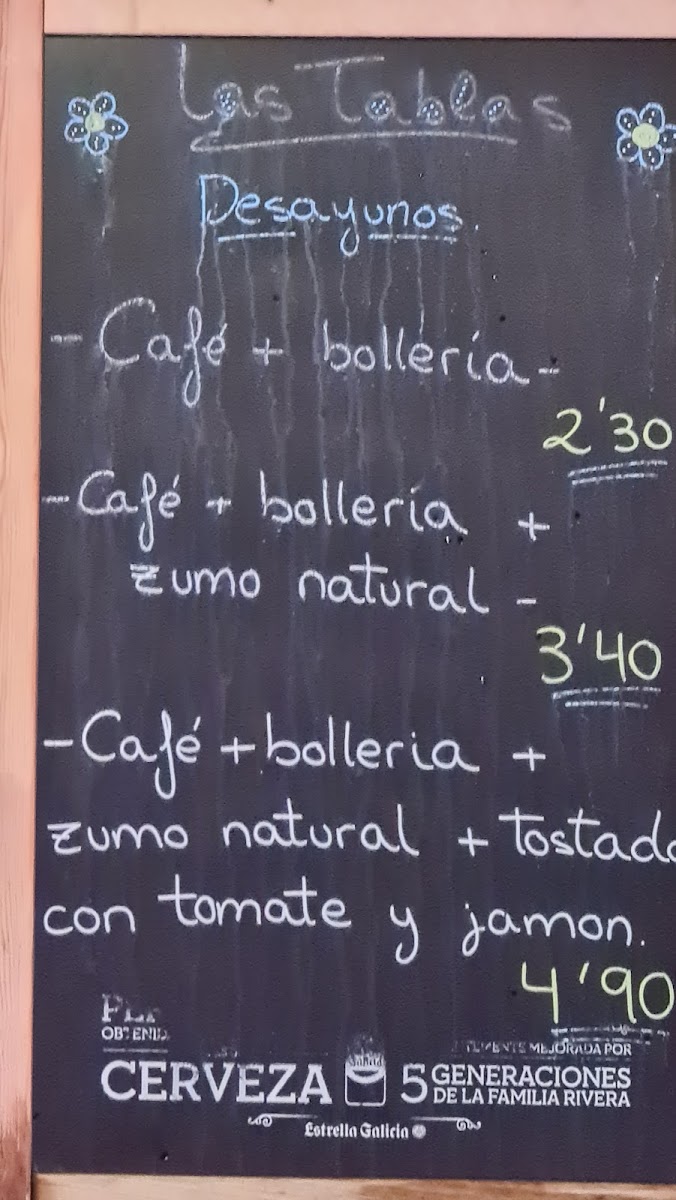 Las Tablas
Desayunos.
- Café + bollería -
2'30
- Café + bollería +
zumo natural -
3'40
- Café + bolleria +
zumo natural + tostada
con tomate y jamon.
4'90
MEJORADA POR
CERVEZA 5 GENERACIONES
DE LA FAMILIA RIVERA
Estrella Galicia